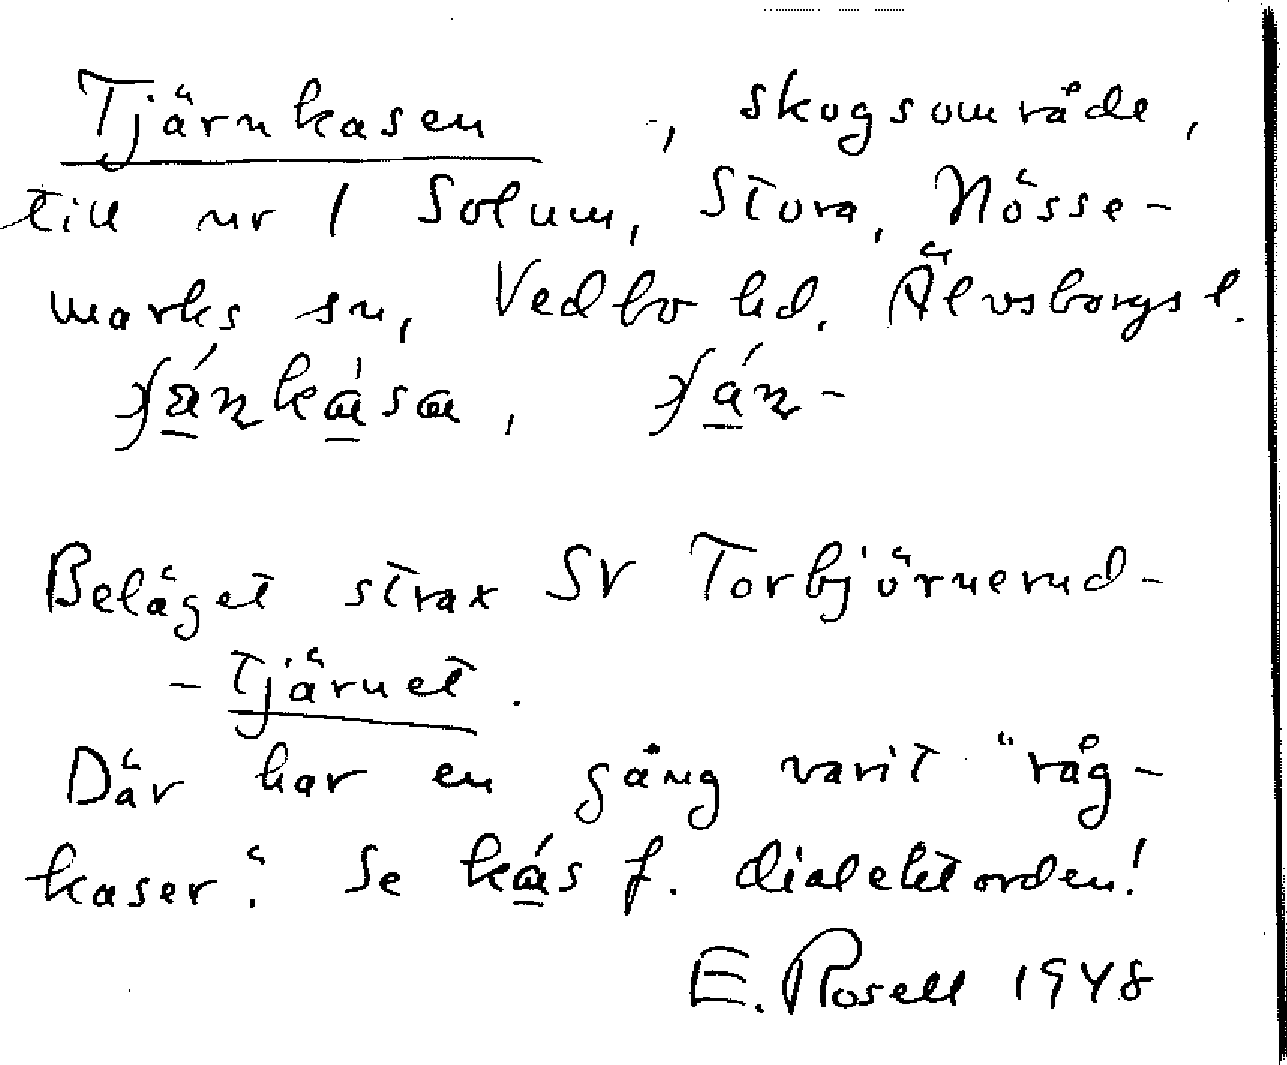 Tjärnkasen -, skogsområde,
till nr 1 Solum, Stora, Nösse-
marks sn, Vedbo hd. Älvsborgs l.
Beläget strax SV Torbjörnerud-
- Tjärnet.
Där har en gång varit "råg-
kaser". Se kás f. dialektorden!
E. Rosell 1948